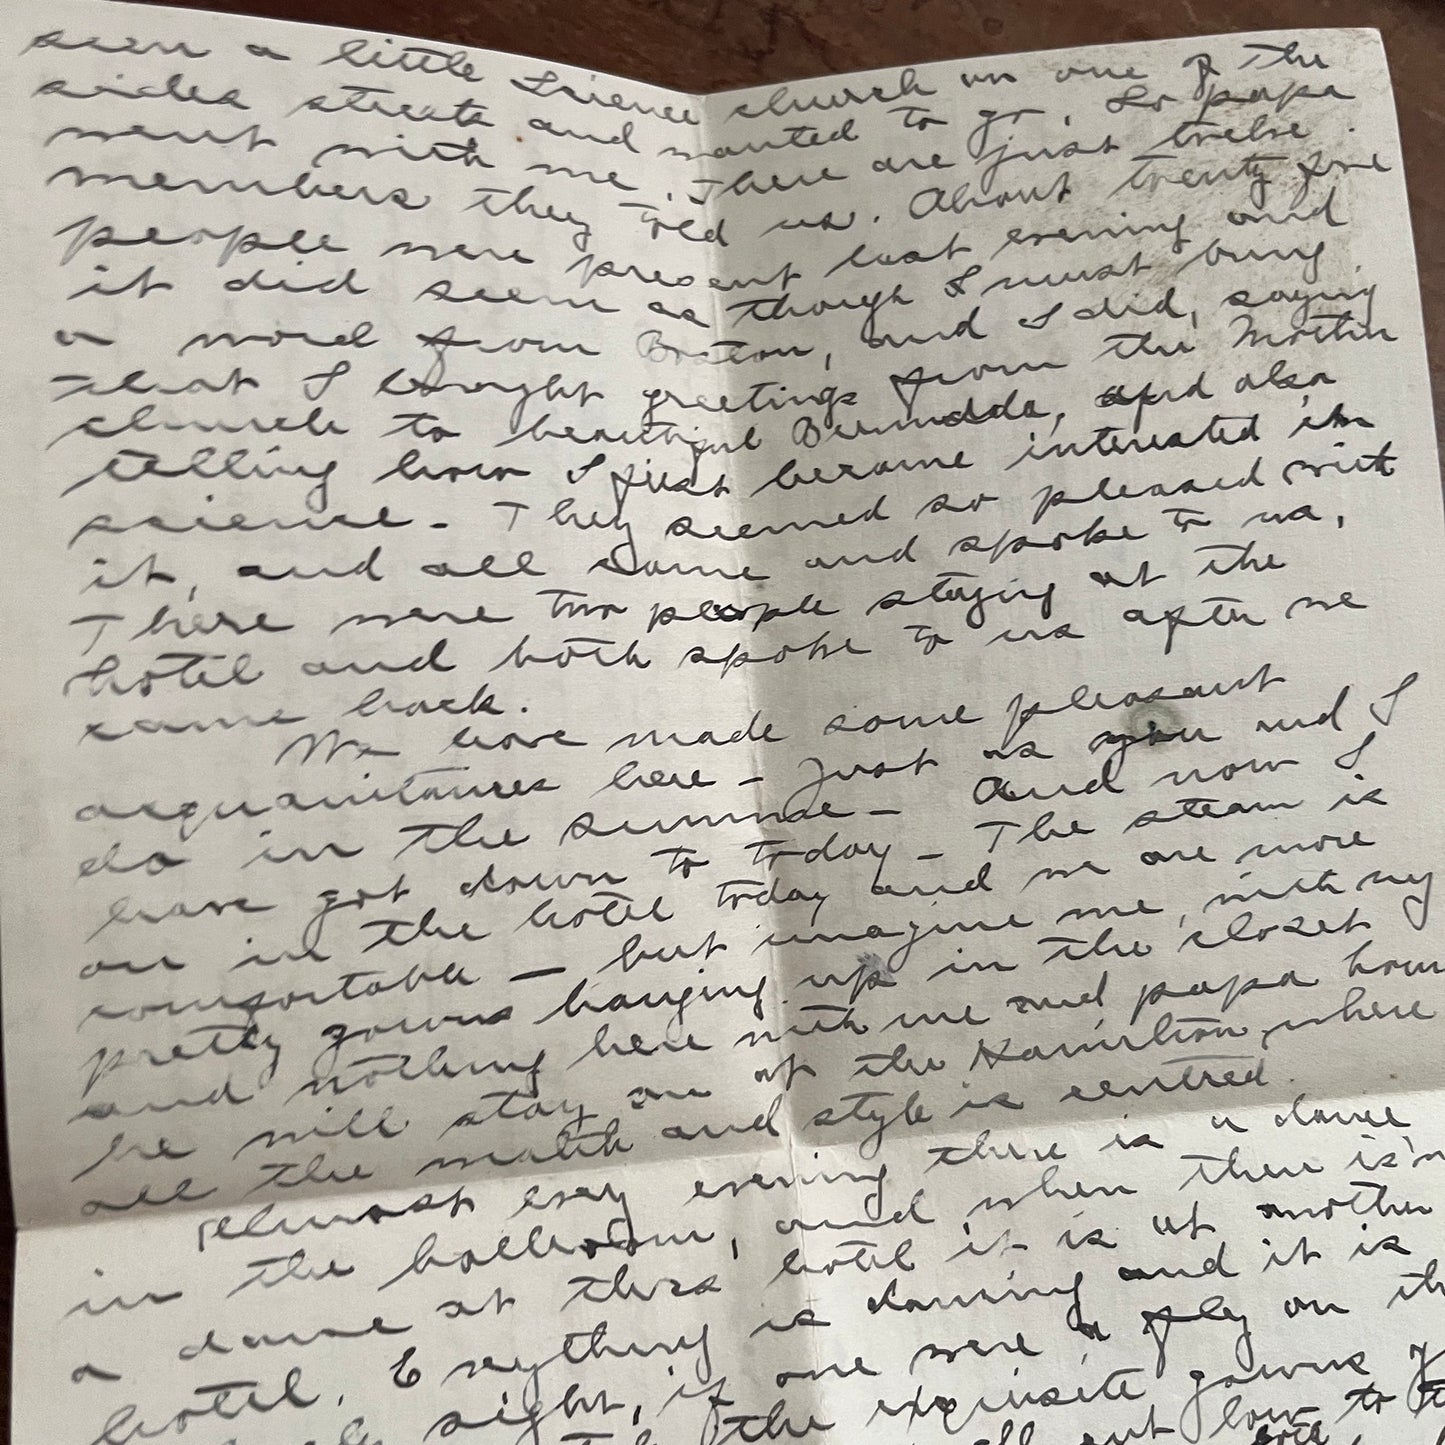 seen a little Science church on one of the
sides streets and wanted to go, So papa
went with me. There are just twelve
members they told us. About twenty five
people were present last evening and
it did seem as though I must bring
a word from Boston, and I did, saying
that I brought greetings from the Mother
church to beautiful Bermudda, and also
telling how I first became interested in
science - They seemed so pleased with
it, and all came and spoke to us,
There were two people staying at the
hotel and both spoke to us after we
came back.
We have made some pleasant
acquaintances here - Just as you and I
do in the summe - And now I
have got down to today - The steam is
on in the hotel today and we are more
comfortable — but imagine me, with my
pretty gowns hanging up in the closet
and nothing here with me and papa how
he will stay on at the Hamilton, where
all the wealth and style is centred.
Almost evey evening there is a dance
in the ballroom, and when there is'n
a dance at this hotel it is at another
hotel. Everything is dancing and it is
sight, if one were a fly on th
the exquisite gowns
cut low to t